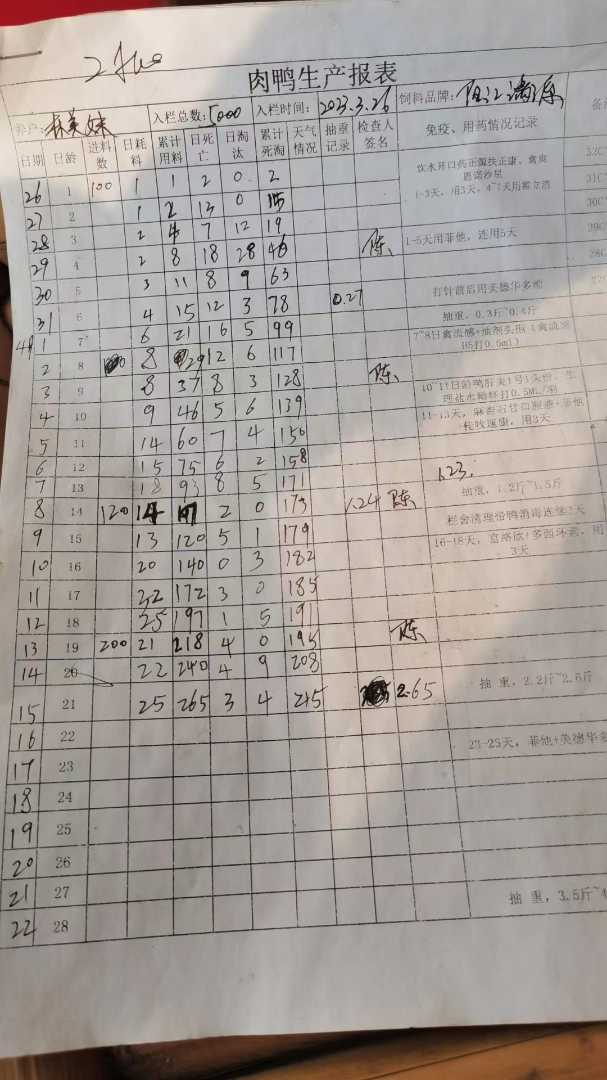 肉鸭生产报表
养户: 林美妹 入栏总数: 5000 入栏时间: 2023.3.26 饲料品牌: 阳江
日期 日龄 进料数 日耗料 累计用料 日死亡 日淘汰 累计死淘 天气情况 抽重记录 检查人签名 免疫、用药情况记录
26 1 100 1 1 2 0 2
饮水开口药正翼扶正康、禽爽
恩诺沙星
27 2 1 2 13 0 15
1-3天，用3天，4~7天用
28 3 2 4 7 12
29 4 2 8 18 28 46 陈 1-5天用菲他，连用5天
30 5 3 11 8 9 63
打针前后用英德华多维
31 6 4 15 12 3 78 0.27 抽重，0.3斤~0.4斤
4月1 7 6 21 16 5 99
7~8日禽流感+
H5打0.5ml)
2 8 8 29 12 6 117
3 9 8 37 8 3 128 陈
4 10 9 46 5 6 139
5 11 14 60 7 4 150
用3天
6 12 15 75 6 2 158
7 13 18 93 8 5 171 1.23 抽重，1.2斤~1.5斤
8 14 120 14 107 2 0 173 1.24 陈
9 15 13 120 5 1 179
栏舍清理份鸭消毒连续2天
10 16 20 140 0 3 182
16-18天，
3天
11 17 32 172 3 0 185
12 18 25 197 1 5 191
13 19 200 21 218 4 0 195 陈
14 20 22 240 4 9 208
15 21 25 265 3 4 215 2.65 抽 重，2.2斤~2.5斤
16 22
23-25天，菲他+英德华多
17 23
18 24
19 25
20 26
21 27 抽 重，3.5斤~
22 28